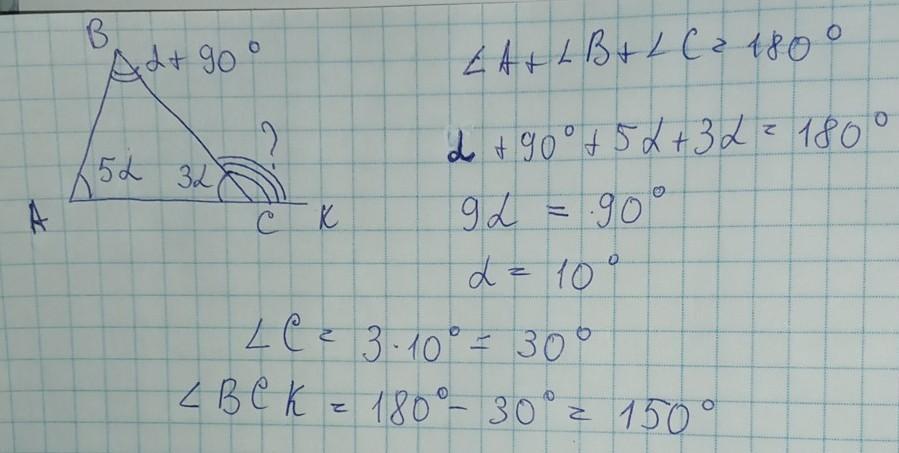 B
α + 90°
?
5α
3α
A
C
K
∠A + ∠B + ∠C = 180°
α + 90° + 5α + 3α = 180°
9α = 90°
α = 10°
∠C = 3 · 10° = 30°
∠BCK = 180° - 30° = 150°